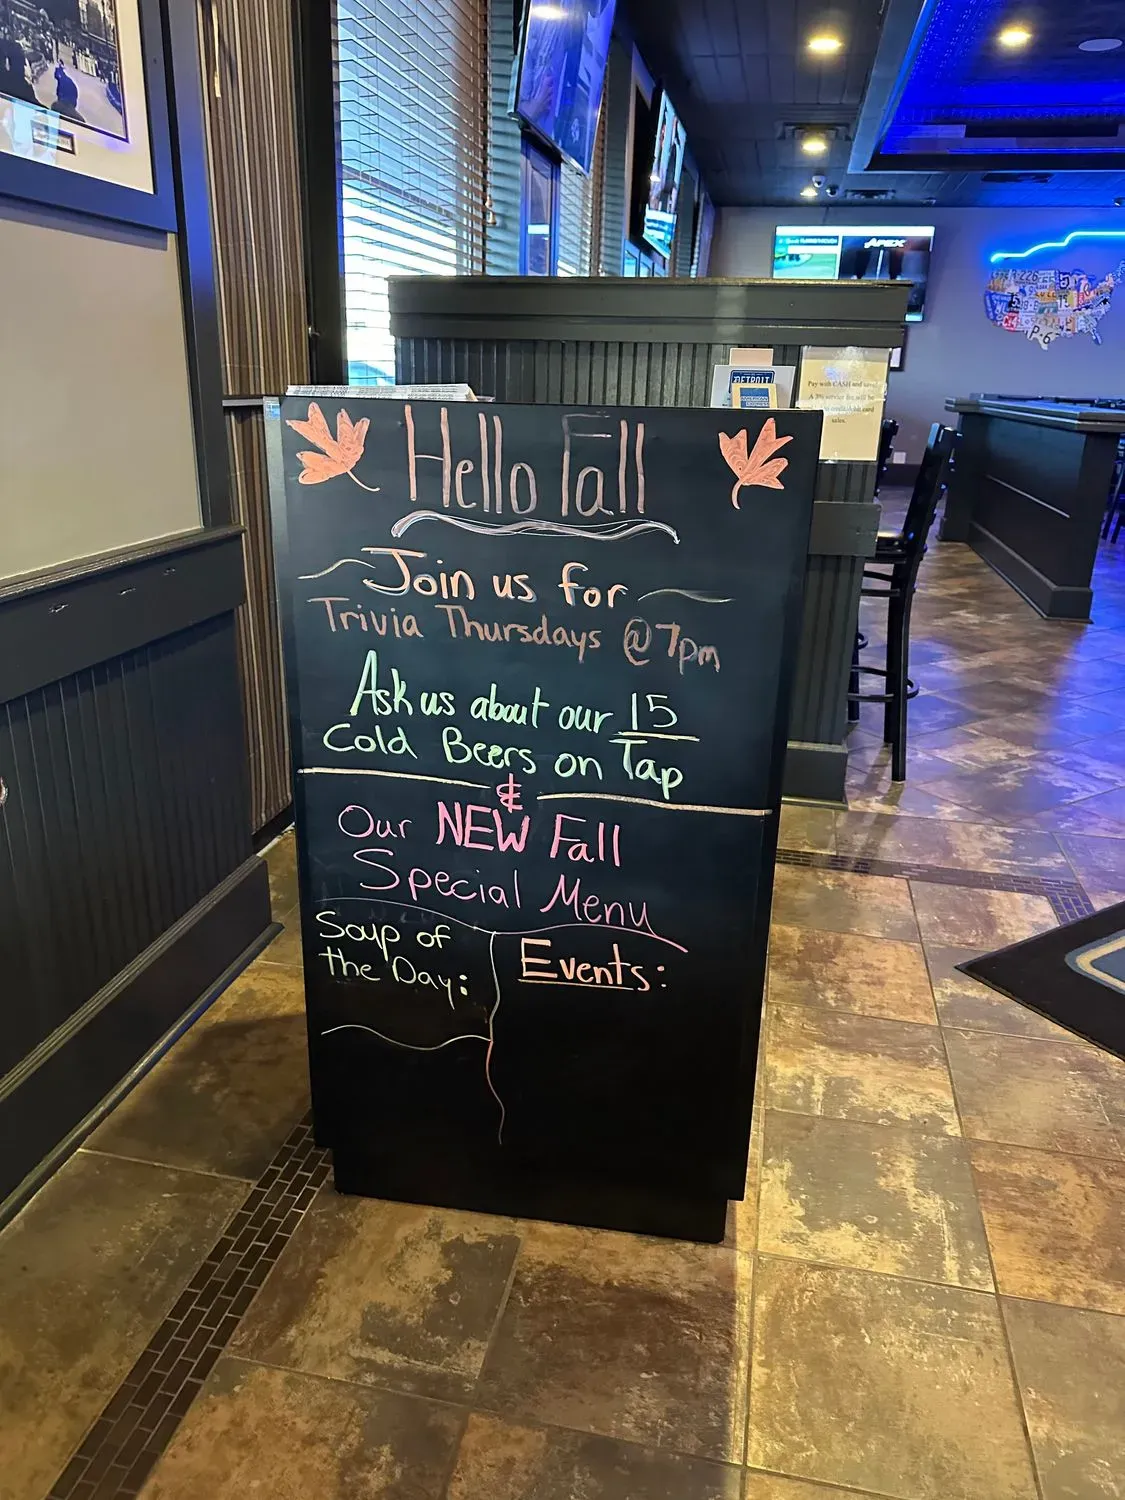 Hello Fall
Join us for
Trivia Thursdays @ 7pm
Ask us about our 15
Cold Beers on Tap
&
Our NEW Fall
Special Menu
Soup of
the Day:
Events:
APEX
DETROIT
AMERICAN
EXPRESS
Pay with CASH and save
A 3% service fee will be
credit/debit card
sales.